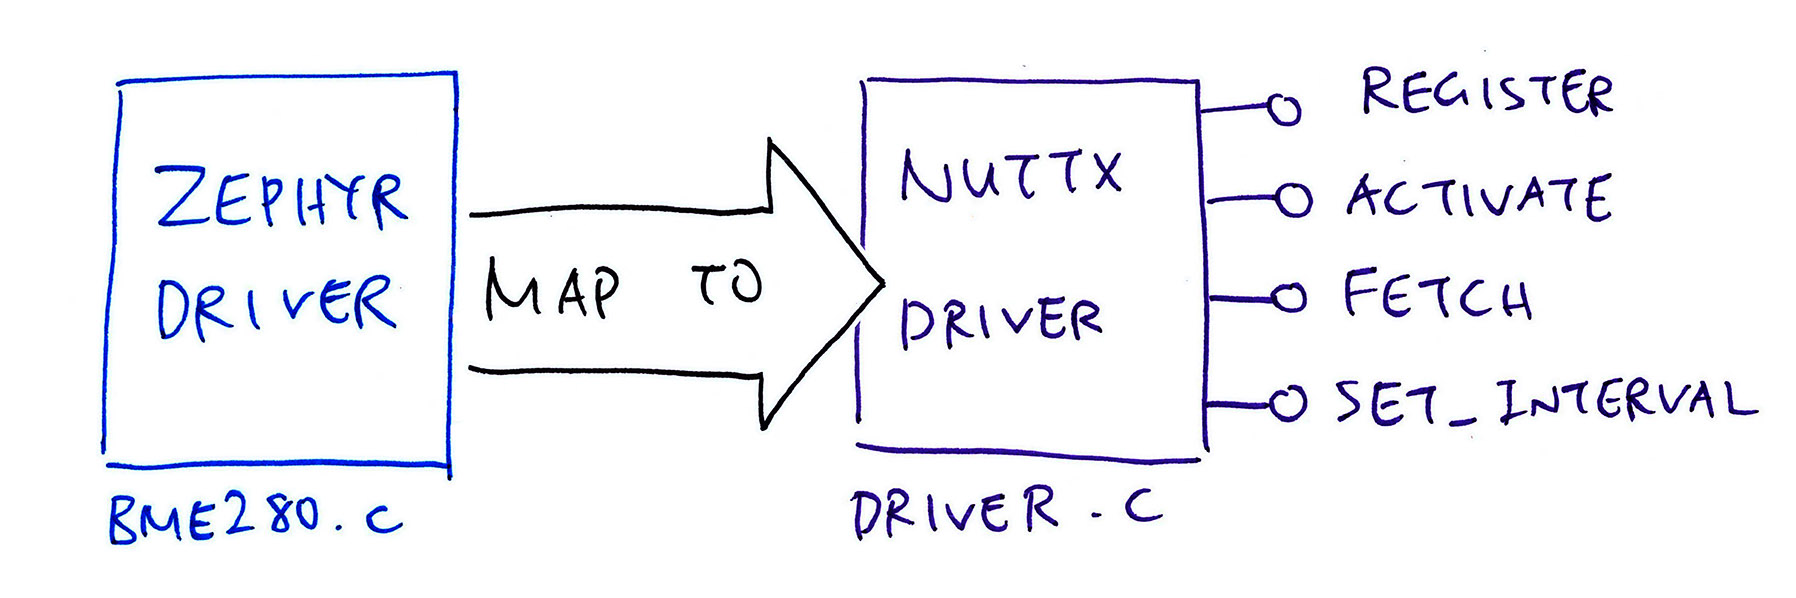 ZEPHYR
DRIVER
BME280.C
MAP TO
NUTTX
DRIVER
DRIVER.C
REGISTER
ACTIVATE
FETCH
SET_INTERVAL